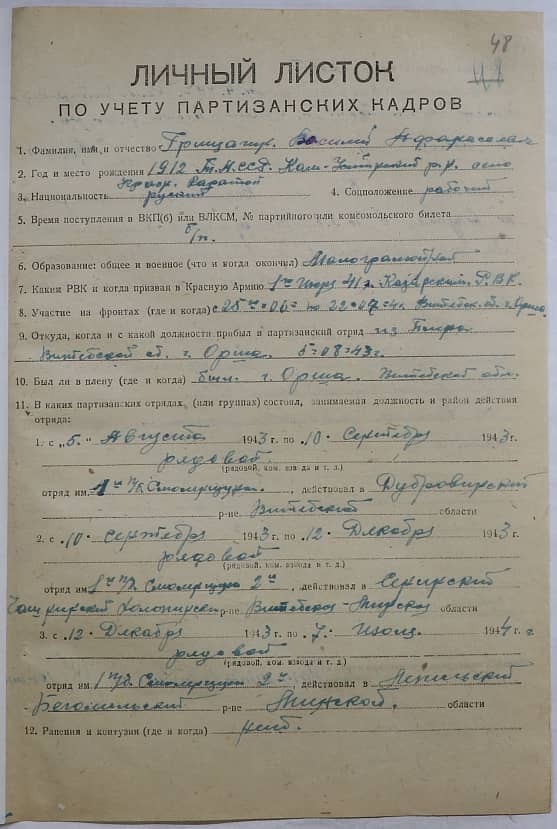 48
ЛИЧНЫЙ ЛИСТОК
ПО УЧЕТУ ПАРТИЗАНСКИХ КАДРОВ
1. Фамилия, имя и отчество Василий
2. Год и место рождения 1912 Т.А.ССР. село
3. Национальность русский 4. Соцположение рабочий
5. Время поступления в ВКП(б) или ВЛКСМ, № партийного или комсомольского билета
б/п.
6. Образование: общее и военное (что и когда окончил) Малограмотный
7. Каким РВК и когда призван в Красную Армию 41 г. Р.В.К.
8. Участие на фронтах (где и когда) с 25 по 22 Витебск. об. г. Орша
9. Откуда, когда и с какой должности прибыл в партизанский отряд из
Витебской об. г. Орша. 5-08-43 г.
10. Был ли в плену (где и когда) был. г. Орша. Витебской обл.
11. В каких партизанских отрядах, (или группах) состоял, занимаемая должность и район действия
отряда:
1. с „5.“ Августа 1943 г. по „10. Сентября 1943 г.
рядовой.
(рядовой, ком. взвода и т. д.)
отряд им. , действовал в Дубровинский
р-не Витебской области
2. с „10. сентября 1943 г. по „12. Декабря 1943 г.
рядовой
(рядовой, ком. взвода и т. д.)
отряд им. , действовал в Сенинский
р-не Витебска-Минской области
3. с „12. Декабря 1943 г. по „7. Июля. 1944 г.
рядовой
(рядовой, ком. взвода и т. д.)
отряд им. , действовал в Лепильский
Бегомльский р-не Минской. области
12. Ранения и контузии (где и когда) нет.